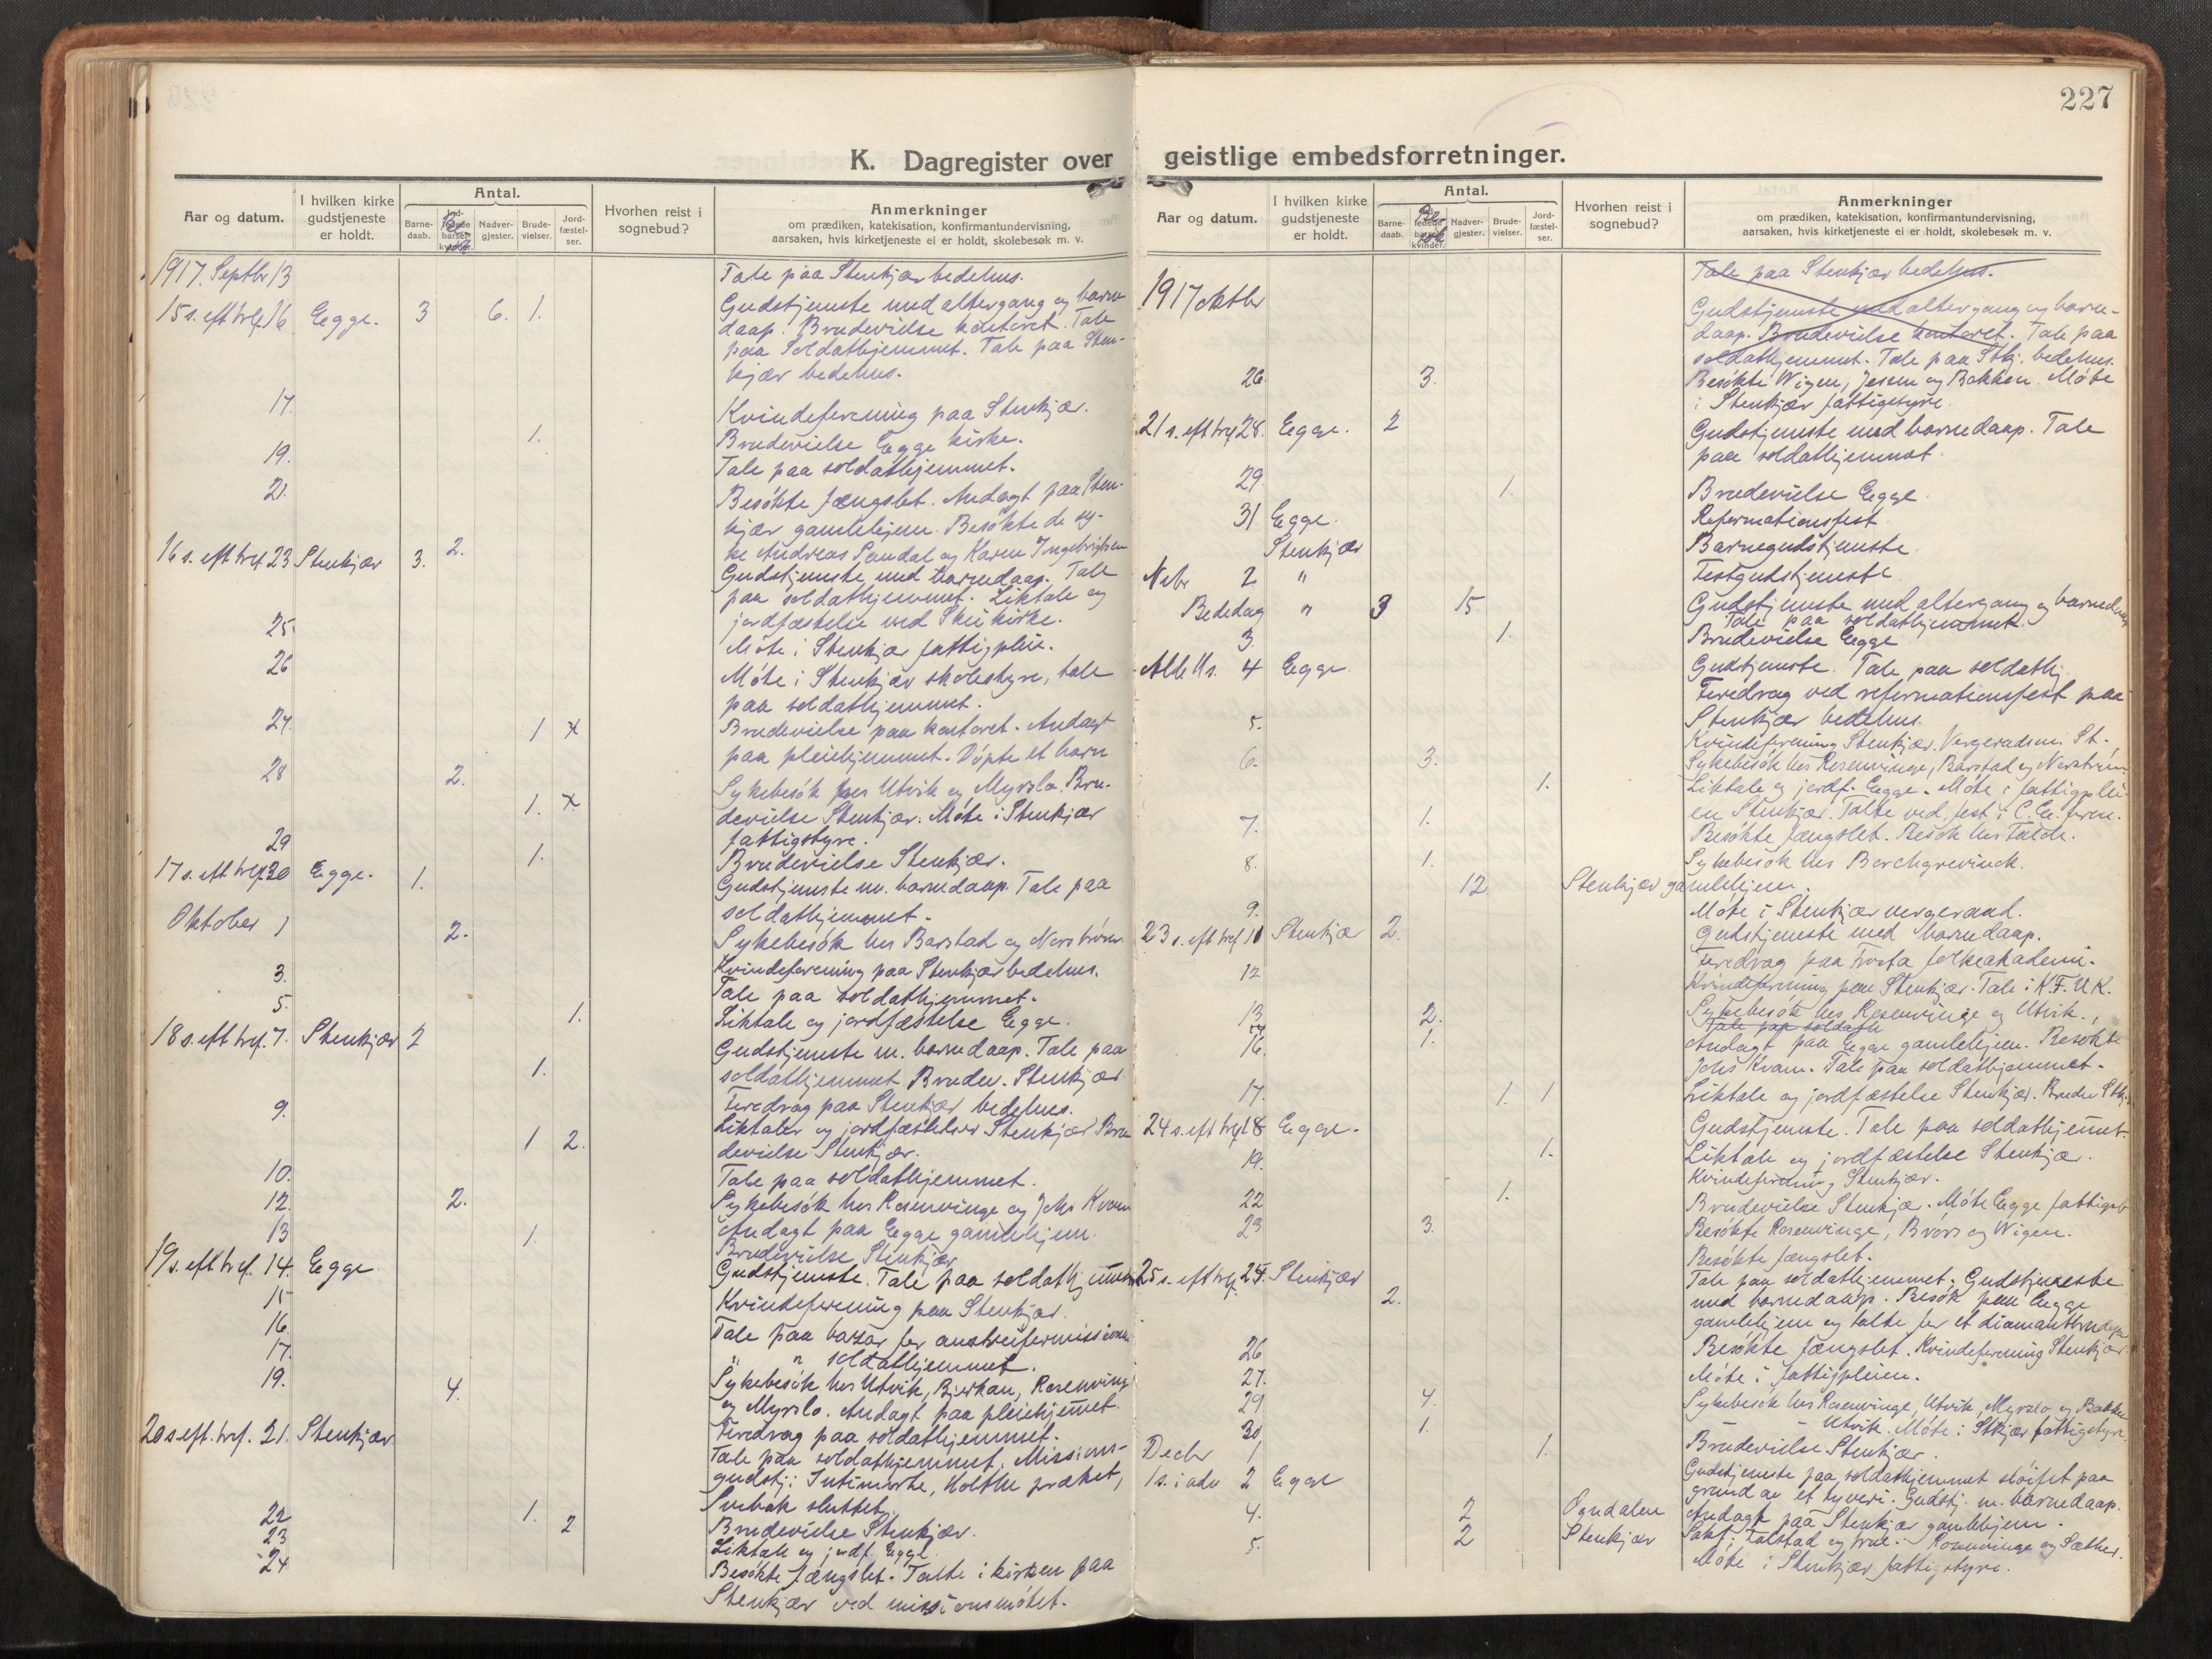 227
K. Dagregister over geistlige embedsforretninger.
Aar og datum. I hvilken kirke gudstjeneste er holdt. Antal. Barne-daab. Nadver-gjester. Brude-vielser. Jord-fæstel-ser. Hvorhen reist i sognebud? Anmerkninger om prædiken, katekisation, konfirmantundervisning, aarsaken, hvis kirketjeneste ei er holdt, skolebesøk m. v.
1917. Septbr 13 Tale paa Stenkjær bedehus.
15 s. eft tref 16 Egge. 3 6. 1. Gudstjeneste med altergang og barne-
daap. Brudevielse kontoret. Tale
paa Soldathjemmet. Tale paa Sten-
kjær bedehus.
17. Kvindeforening paa Stenkjær.
1. Brudevielse Egge kirke.
19. Tale paa soldathjemmet.
21. Besökte fængslet. Andagt paa Sten-
kjær gamlehjem. Besökte de sy-
2. ke Andreas Sandal og Karen Ingebrigtsen
16 s. eft tref 23 Stenkjær 3. Gudstjeneste med barnedaap. Tale
paa soldathjemmet. Liktale og
jordfæstelse ved Skei kirke.
25. Möte i Stenkjær fattigpleie.
26 Möte i Stenkjær skolestyre, tale
paa soldathjemmet.
27. 1 x Brudevielse paa kontoret. Andagt
paa pleiehjemmet. Döpte et barn
28 2. Sykebesök hos Utvik og Myrslo. Bru-
1. x devielse Stenkjær. Möte i Stenkjær
fattigstyre.
29 1. Brudevielse Stenkjær.
17 s. eft tref 30 Egge. 1. Gudstjeneste m. barnedaap. Tale paa
soldathjemmet.
Oktober 1 2. Sykebesök hos Barstad og
Kvindeforening paa Stenkjær bedehus.
3. Tale paa soldathjemmet.
5. 1. Liktale og jordfæstelse Egge.
18 s. eft tref. 7. Stenkjær 2 Gudstjeneste m. barnedaap. Tale paa
1. soldathjemmet Brudev. Stenkjær
Foredrag paa Stenkjær bedehus.
9. Liktaler og jordfæstelser Stenkjær Bru
1 2. devielse Stenkjær.
10. Tale paa soldathjemmet.
12. 2. Sykebesök hos Rosenvinge og Johs Kvam
13 1. Andagt paa Egge gamlehjem.
Brudevielse Stenkjær
19 s. eft tref. 14. Egge Gudstjeneste. Tale paa soldathjemmet
15 Kvindeforening paa Stenkjær.
16 Tale paa bazar for
17. " " soldathjemmet.
19. 4. Sykebesök hos Utvik, Bjerkan, Rosenvinge
og Myrslo. Andagt paa pleiehjemet.
Foredrag paa soldathjemmet.
20 s eft. tref. 21. Stenkjær Tale paa soldathjemmet. Missions-
gudstj: Intimerte, Holthe præket,
Svebak sluttet.
22 1. Brudevielse Stenkjær.
23 2 Liktale og jordf. Egge.
24 Besökte fængslet. Talte i kirken paa
Stenkjær ved missionsmötet.
1917 oktbr Tale paa Stenkjær bedehus.
Gudstjeneste med altergang og barne-
daap. Brudevielse kontoret. Tale paa
soldathjemmet. Tale paa Stkj. bedehus.
26. 3. Besökte Wigen, Jessen og Bakken Möte
i Stenkjær fattigstyre.
21 s. eft tref 28. Egge. 2 Gudstjeneste med barnedaap. Tale
paa soldathjemmet.
29. 1. Brudevielse Egge.
31 Egge. Reformationsfest.
Stenkjær Barnegudstjeneste.
Nvbr 2 " Festgudstjeneste.
Bededag " 3 15 Gudstjeneste med altergang og barnedaap
Tale paa soldathjemmet.
3. 1. Brudevielse Egge
Alle Hs. 4 Egge Gudstjeneste. Tale paa soldathj.
Foredrag ved reformationsfest paa
Stenkjær bedehus.
5. Kvindeforening Stenkjær. Vergeraadsm. St.
6. 3. Sykebesök hos Rosenvinge, Barstad og
1. Liktale og jordf. Egge. Möte i fattigplei-
en Stenkjær. Talte ved fest i C. E. foren.
7. 1. Besökte fængslet. Besök hos
8. 1. Sykebesök hos Borchgrevinck.
12 Stenkjær gamlehjem.
9. Möte i Stenkjær vergeraad.
23 s. eft tref 11 Stenkjær 2. Gudstjeneste med barnedaap.
Foredrag paa Frosta folkeakademi.
12 Kvindeforening paa Stenkjær. Tale i K.F.U.K.
13 2. Sykebesök hos Rosenvinge og Utvik.
Tale paa soldath
16. 1. Andagt paa Egge gamlehjem. Besökte
Johs Kvam. Tale paa soldathjemmet.
17. 1. 1 Liktale og jordfæstelse Stenkjær. Brudev Stkj.
24 s. eft tref 18 Egge. Gudstjeneste. Tale paa soldathjemet.
19. 1. Liktale og jordfæstelse Stenkjær.
Kvindeforening Stenkjær.
22 1. Brudevielse Stenkjæ. Möte Egge fattigst
23 3. Besökte Rosenvinge, Brörs og Wigen.
Besökte fængslet.
25 s. eft tref. 25. Stenkjær Tale paa soldathjemmet. Gudstjeneste
2. med barnedaap. Besök paa Egge
gamlehjem og talte for et diamantbrudepar
26 Besökte fængslet. Kvindeforening Stenkjær
27. Möte i fattigpleien.
29 4. Sykebesök hos Rosenvinge, Utvik, Myrslo og Bakken
30 1. " Utvik. Möte i Stkjær fattigstyre
Decbr 1 1. Brudevielse Stenkjær.
1 s. i adv 2 Egge Gudstjeneste paa soldathjemmet slöifet paa
grund av et tyveri. Gudstj. m. barnedaap.
4. 2 Ogndalen Andagt paa Stenkjær gamlehjem.
5. 2 Stenkjær og frue. Rosenvinge og Sæther.
Möte i Stenkjær fattigstyre.